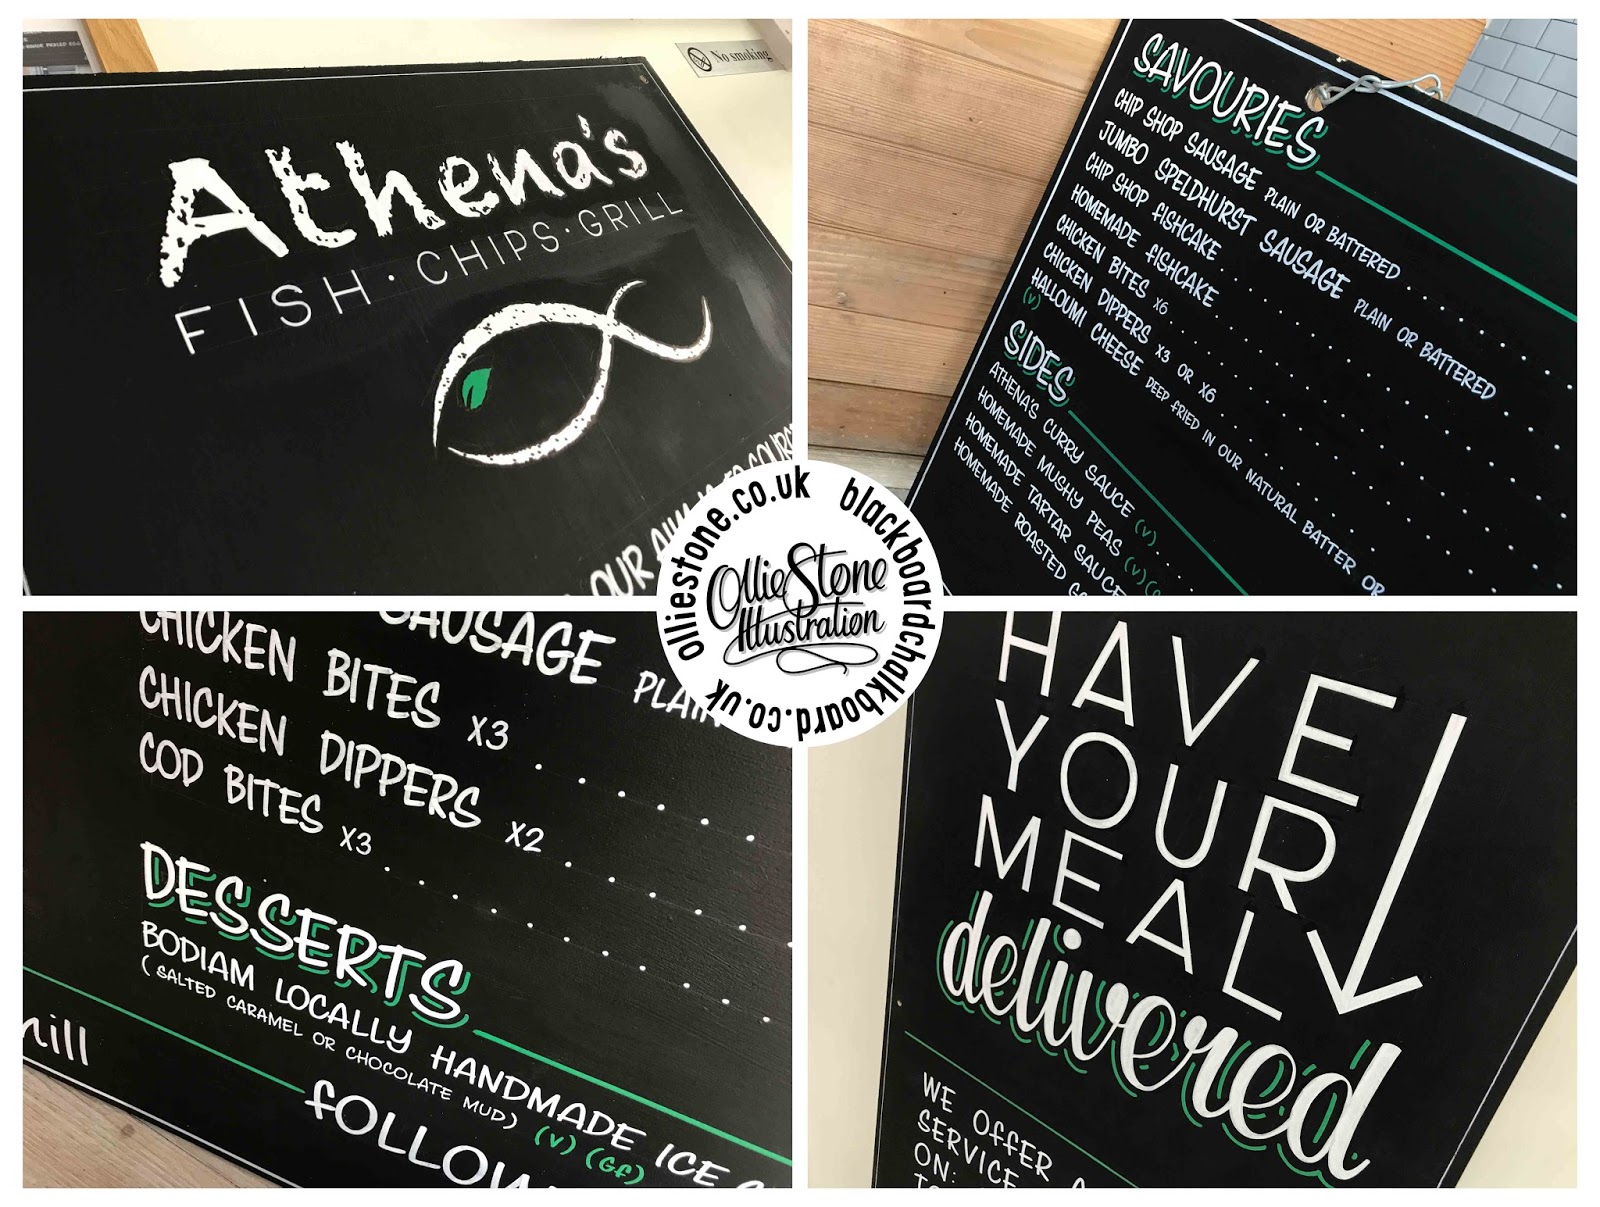 No smoking
Athena's
FISH · CHIPS · GRILL
OUR AIM IS TO SOURCE
SAVOURIES
CHIP SHOP SAUSAGE PLAIN OR BATTERED
JUMBO SPELDHURST SAUSAGE PLAIN OR BATTERED
CHIP SHOP FISHCAKE
HOMEMADE FISHCAKE
CHICKEN BITES x6
CHICKEN DIPPERS x3 OR x6
HALLOUMI CHEESE DEEP FRIED IN OUR NATURAL BATTER OR
(V)
SIDES
ATHENA'S CURRY SAUCE (V)
HOMEMADE MUSHY PEAS (V)
HOMEMADE TARTAR SAUCE
HOMEMADE ROASTED
olliestone.co.uk
blackboardchalkboard.co.uk
Ollie Stone
Illustration
SAUSAGE PLAIN
CHICKEN BITES x3
CHICKEN DIPPERS x2
COD BITES x3
DESSERTS
BODIAM LOCALLY HANDMADE ICE
(SALTED CARAMEL OR CHOCOLATE MUD) (V) (Gf)
hill
fOLLOW
HAVE
YOUR
MEAL
delivered
WE OffER
SERVICE
ON: